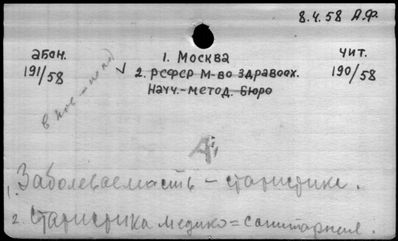 8.4.58 А.Ф.
абон.
191/58
1. Москва
2. РСФСР М-во здравоох.
Науч.-метод. бюро
чит.
190/58
1. Заболеваемость – статистика.
2. Статистика медико=санитарная.